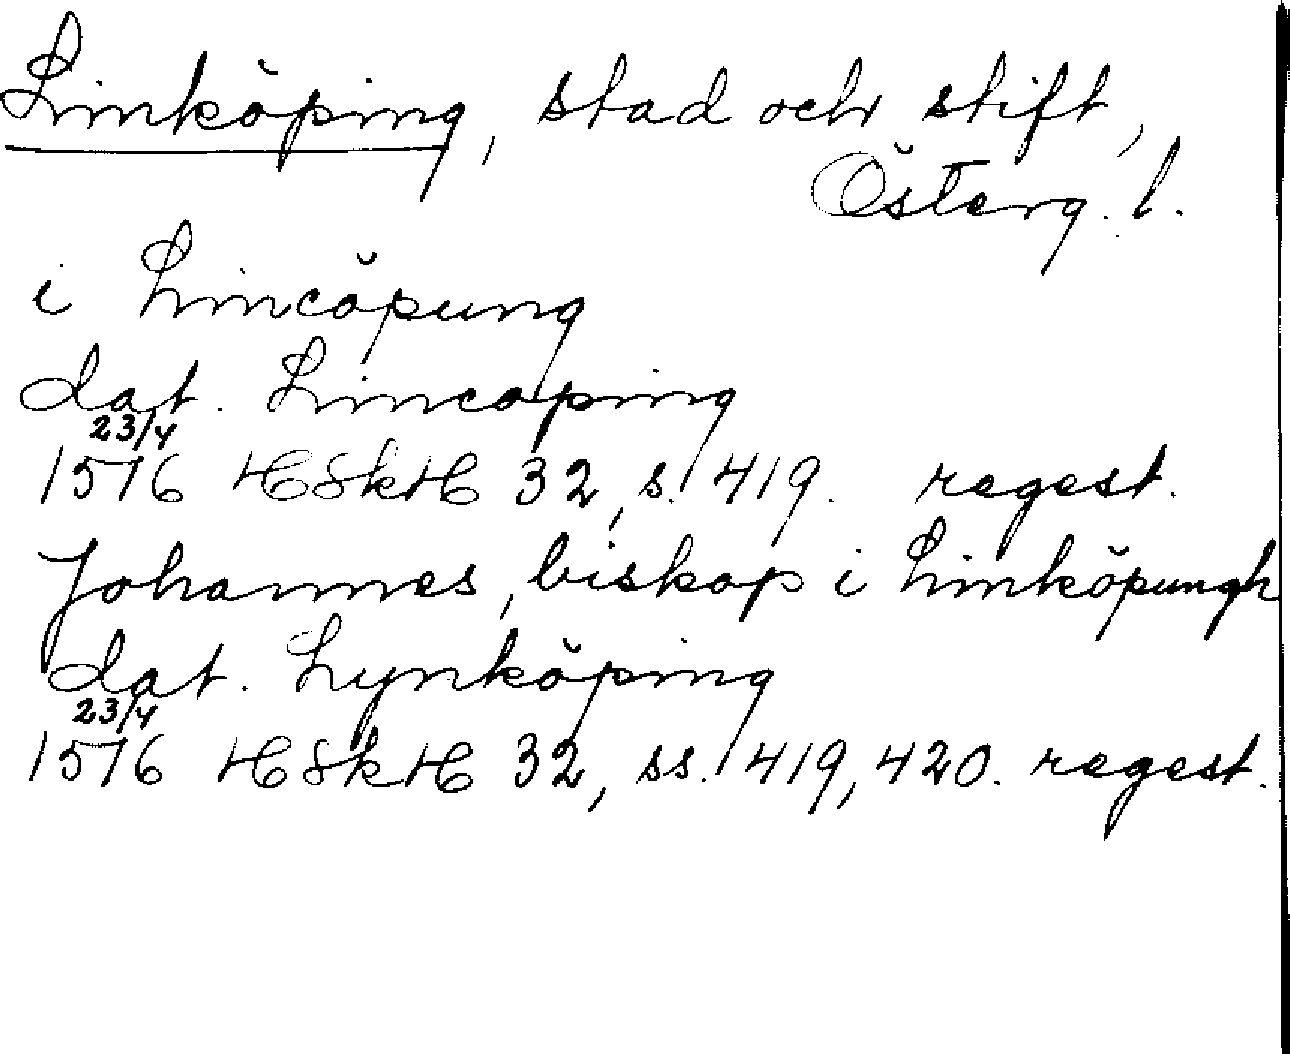 Linköping, stad och stift,
Österg. l.
i Lincöpung
dat. Lincoping
23/4
1576 HSkH 32, s. 419. regest.
Johannes, biskop i Linköpungh
dat. Lynköping
23/4
1576 HSkH 32, ss. 419, 420. regest.